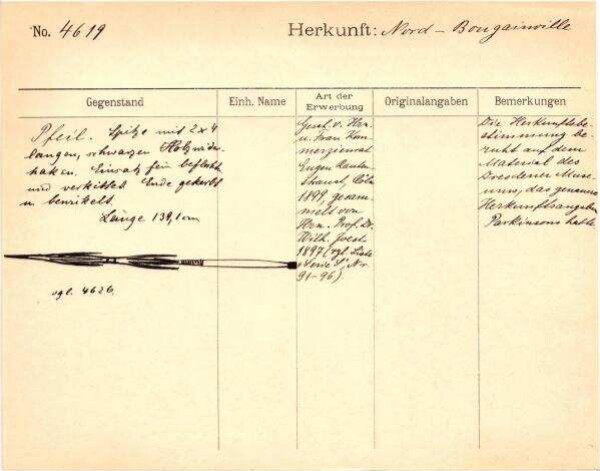 No. 4619
Herkunft: Nord - Bougainville
Gegenstand
Einh. Name
Art der Erwerbung
Originalangaben
Bemerkungen
Pfeil. Spitze mit 2 x 4
langen, schwarzen Holzwider-
haken. Einsatz fein beflocht.
und verkittet. Ende gekerbt
u. bewickelt.
Länge 139,1 cm
vgl. 4626.
Gesch. v. Hrn.
u. Frau Kom-
merzienrat
Eugen Rauten-
strauch, Cöln
1899, gesam-
melt von
Hrn. Prof. Dr.
Wilh. Joest
1897 (vgl. Liste
Nr.
91-96).
Die Herkunftsbe-
stimmung be-
ruht auf dem
Material des
Dresdener Muse-
ums, das genaue
Herkunftsangaben
Parkinsons hatte.